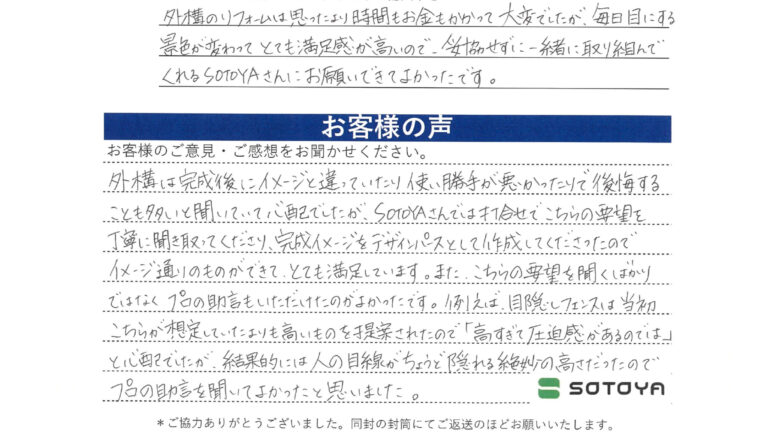 外構のリフォームは思ったより時間もお金もかかって大変でしたが、毎日目にする
景色が変わってとても満足感が高いので、妥協せずに一緒に取り組んで
くれるSOTOYAさんにお願いできてよかったです。
お客様の声
お客様のご意見・ご感想をお聞かせください。
外構は完成後にイメージと違っていたり使い勝手が悪かったりで後悔する
ことも多いと聞いていて心配でしたが、SOTOYAさんでは打合せでこちらの要望を
丁寧に聞き取ってくださり、完成イメージをデザインパースとして作成してくださったので
イメージ通りのものができて、とても満足しています。また、こちらの要望を聞くばかり
ではなくプロの助言もいただけたのがよかったです。例えば、目隠しフェンスは当初
こちらが想定していたよりも高いものを提案されたので「高すぎて圧迫感があるのでは」
と心配でしたが、結果的には人の目線がちょうど隠れる絶妙の高さだったので
プロの助言を聞いてよかったと思いました。
SOTOYA
＊ご協力ありがとうございました。同封の封筒にてご返送のほどお願いいたします。